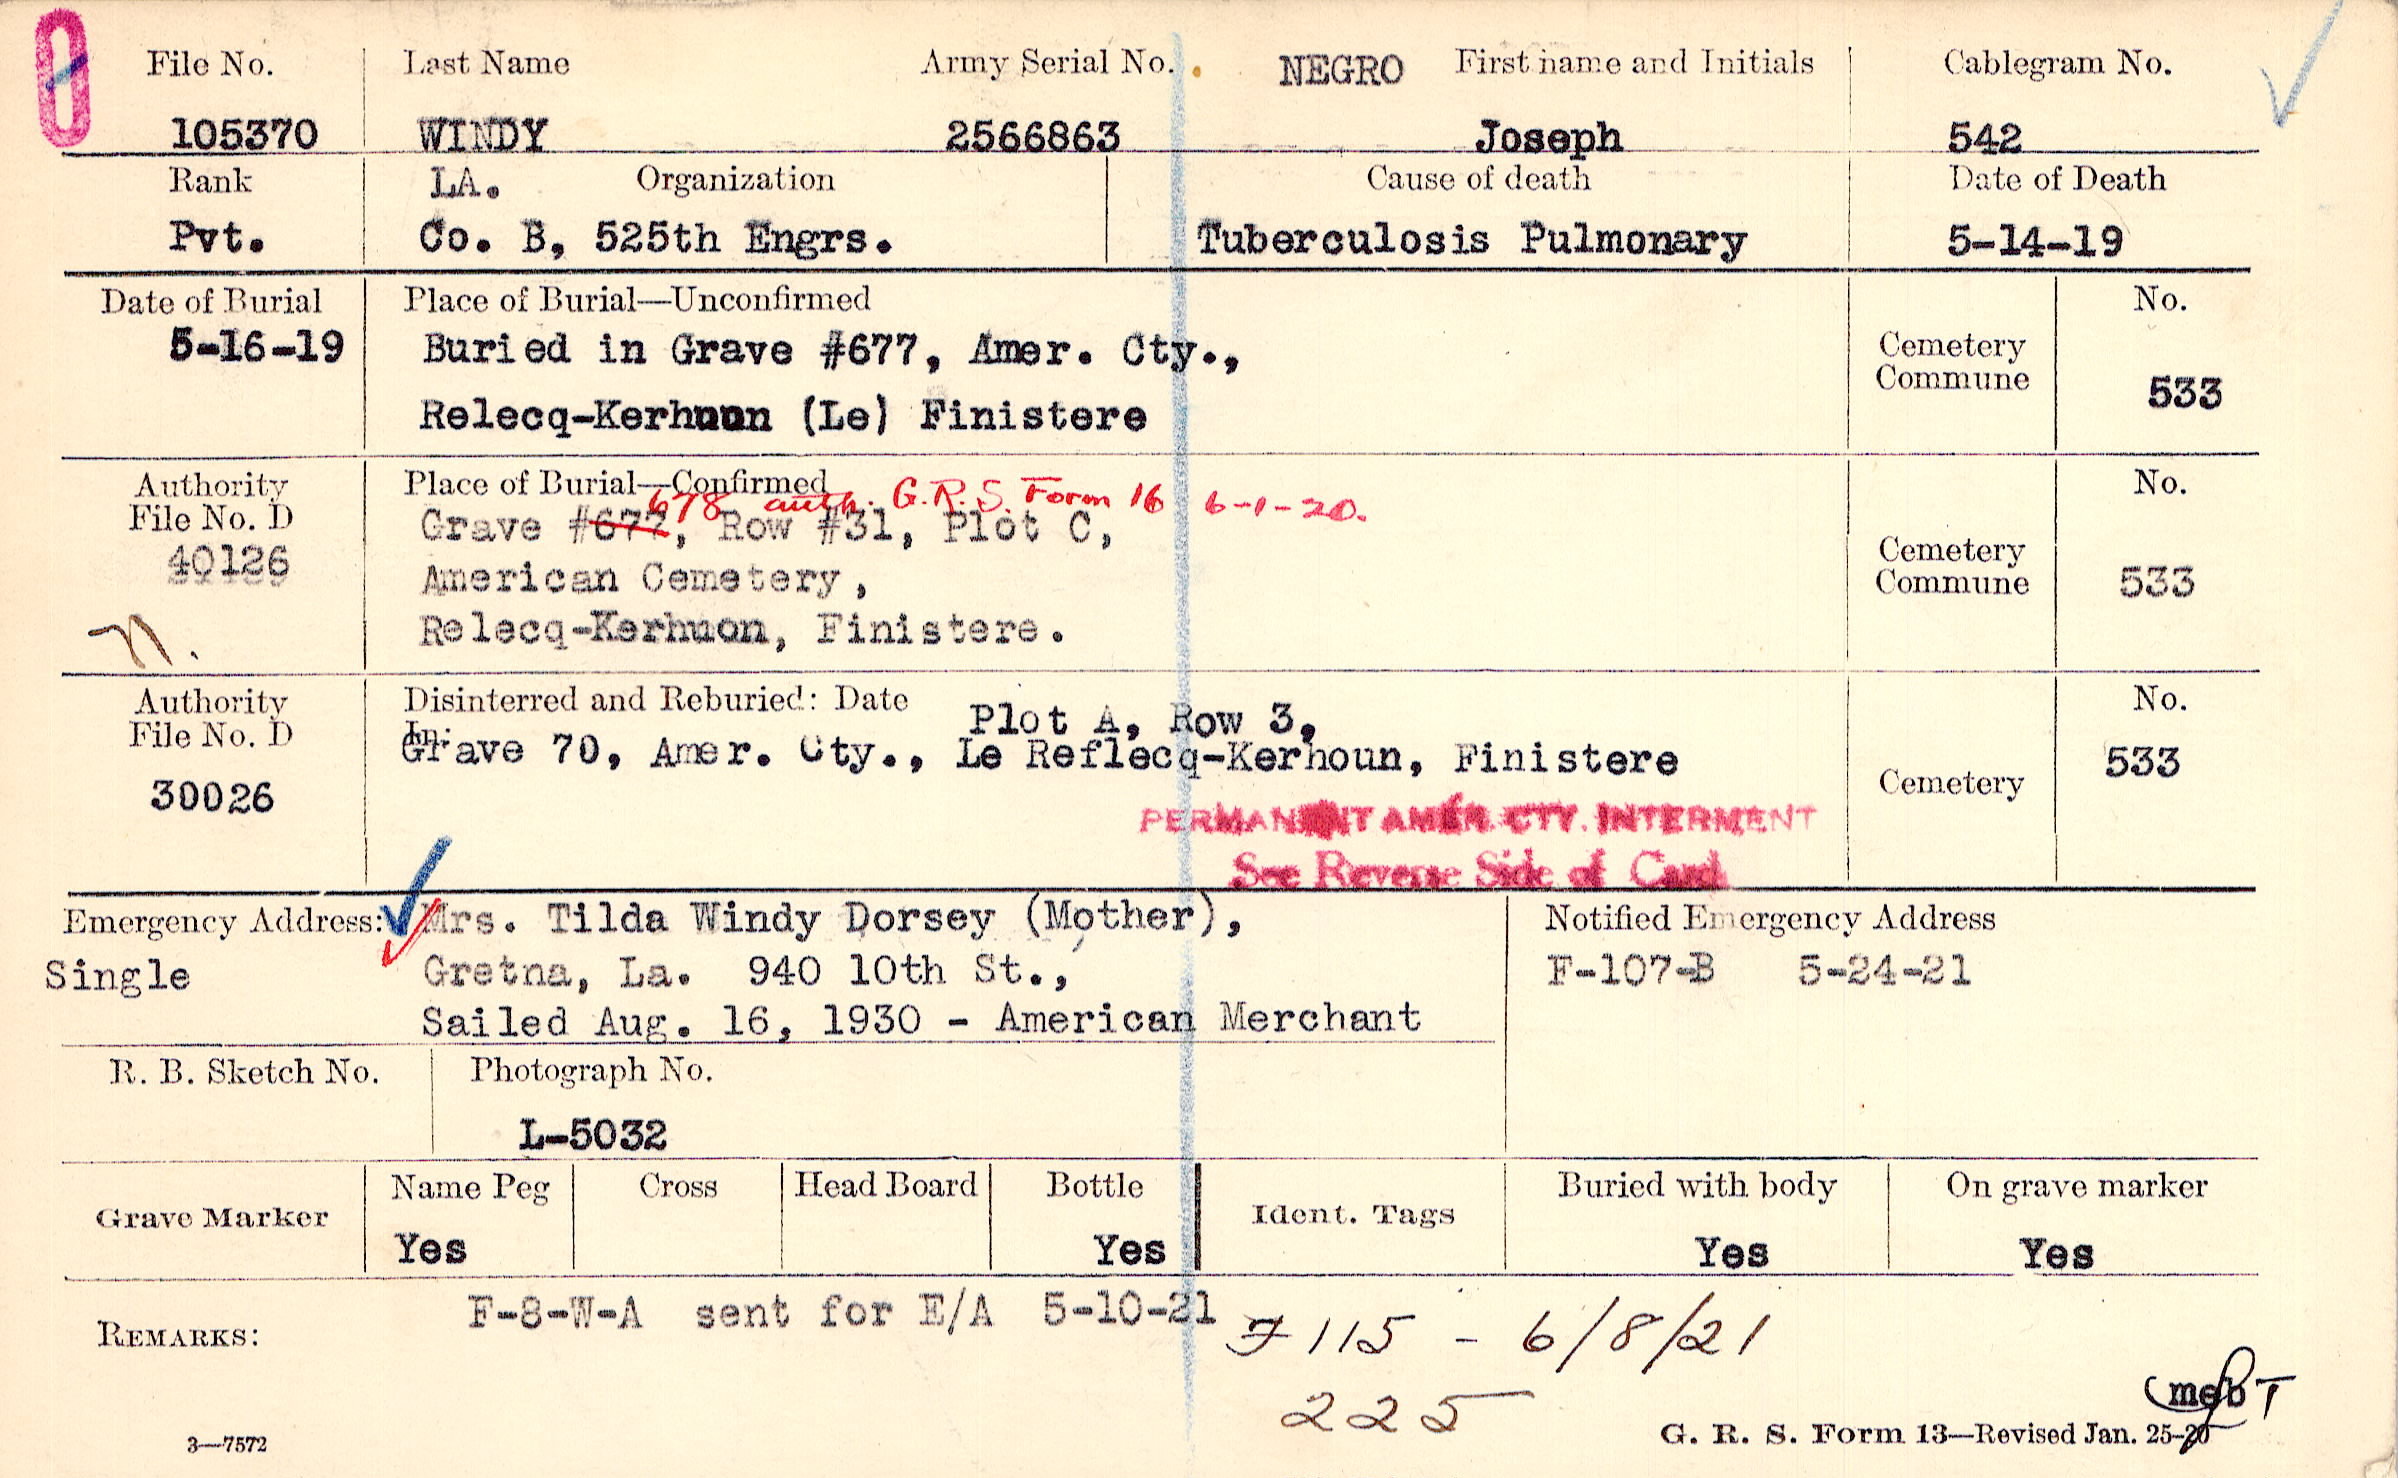 File No. Last Name Army Serial No. NEGRO First name and Initials Cablegram No.
105370 WINDY 2566863 Joseph 542
Rank LA. Organization Cause of death Date of Death
Pvt. Co. B, 525th Engrs. Tuberculosis Pulmonary 5-14-19
Date of Burial Place of Burial—Unconfirmed No.
5-16-19 Buried in Grave #677, Amer. Cty., Cemetery
Commune 533
Relecq-Kerhuon (Le) Finistere
Authority Place of Burial—Confirmed No.
678 auth. G.R.S. Form 16 6-1-20.
File No. D Grave #677, Row #31, Plot C,
40126 American Cemetery, Cemetery
Commune 533
n. Relecq-Kerhuon, Finistere.
Authority Disinterred and Reburied: Date Plot A, Row 3, No.
File No. D In:
Grave 70, Amer. Cty., Le Reflecq-Kerhoun, Finistere 533
30026 Cemetery
PERMANENT AMER. CTY. INTERMENT
See Reverse Side of Card
Emergency Address: Mrs. Tilda Windy Dorsey (Mother), Notified Emergency Address
Single Gretna, La. 940 10th St., F-107-B 5-24-21
Sailed Aug. 16, 1930 - American Merchant
R. B. Sketch No. Photograph No.
L-5032
Grave Marker Name Peg Cross Head Board Bottle Ident. Tags Buried with body On grave marker
Yes Yes Yes Yes
REMARKS: F-8-W-A sent for E/A 5-10-21 F 115 - 6/8/21
225
3—7572 G. R. S. Form 13—Revised Jan. 25-20